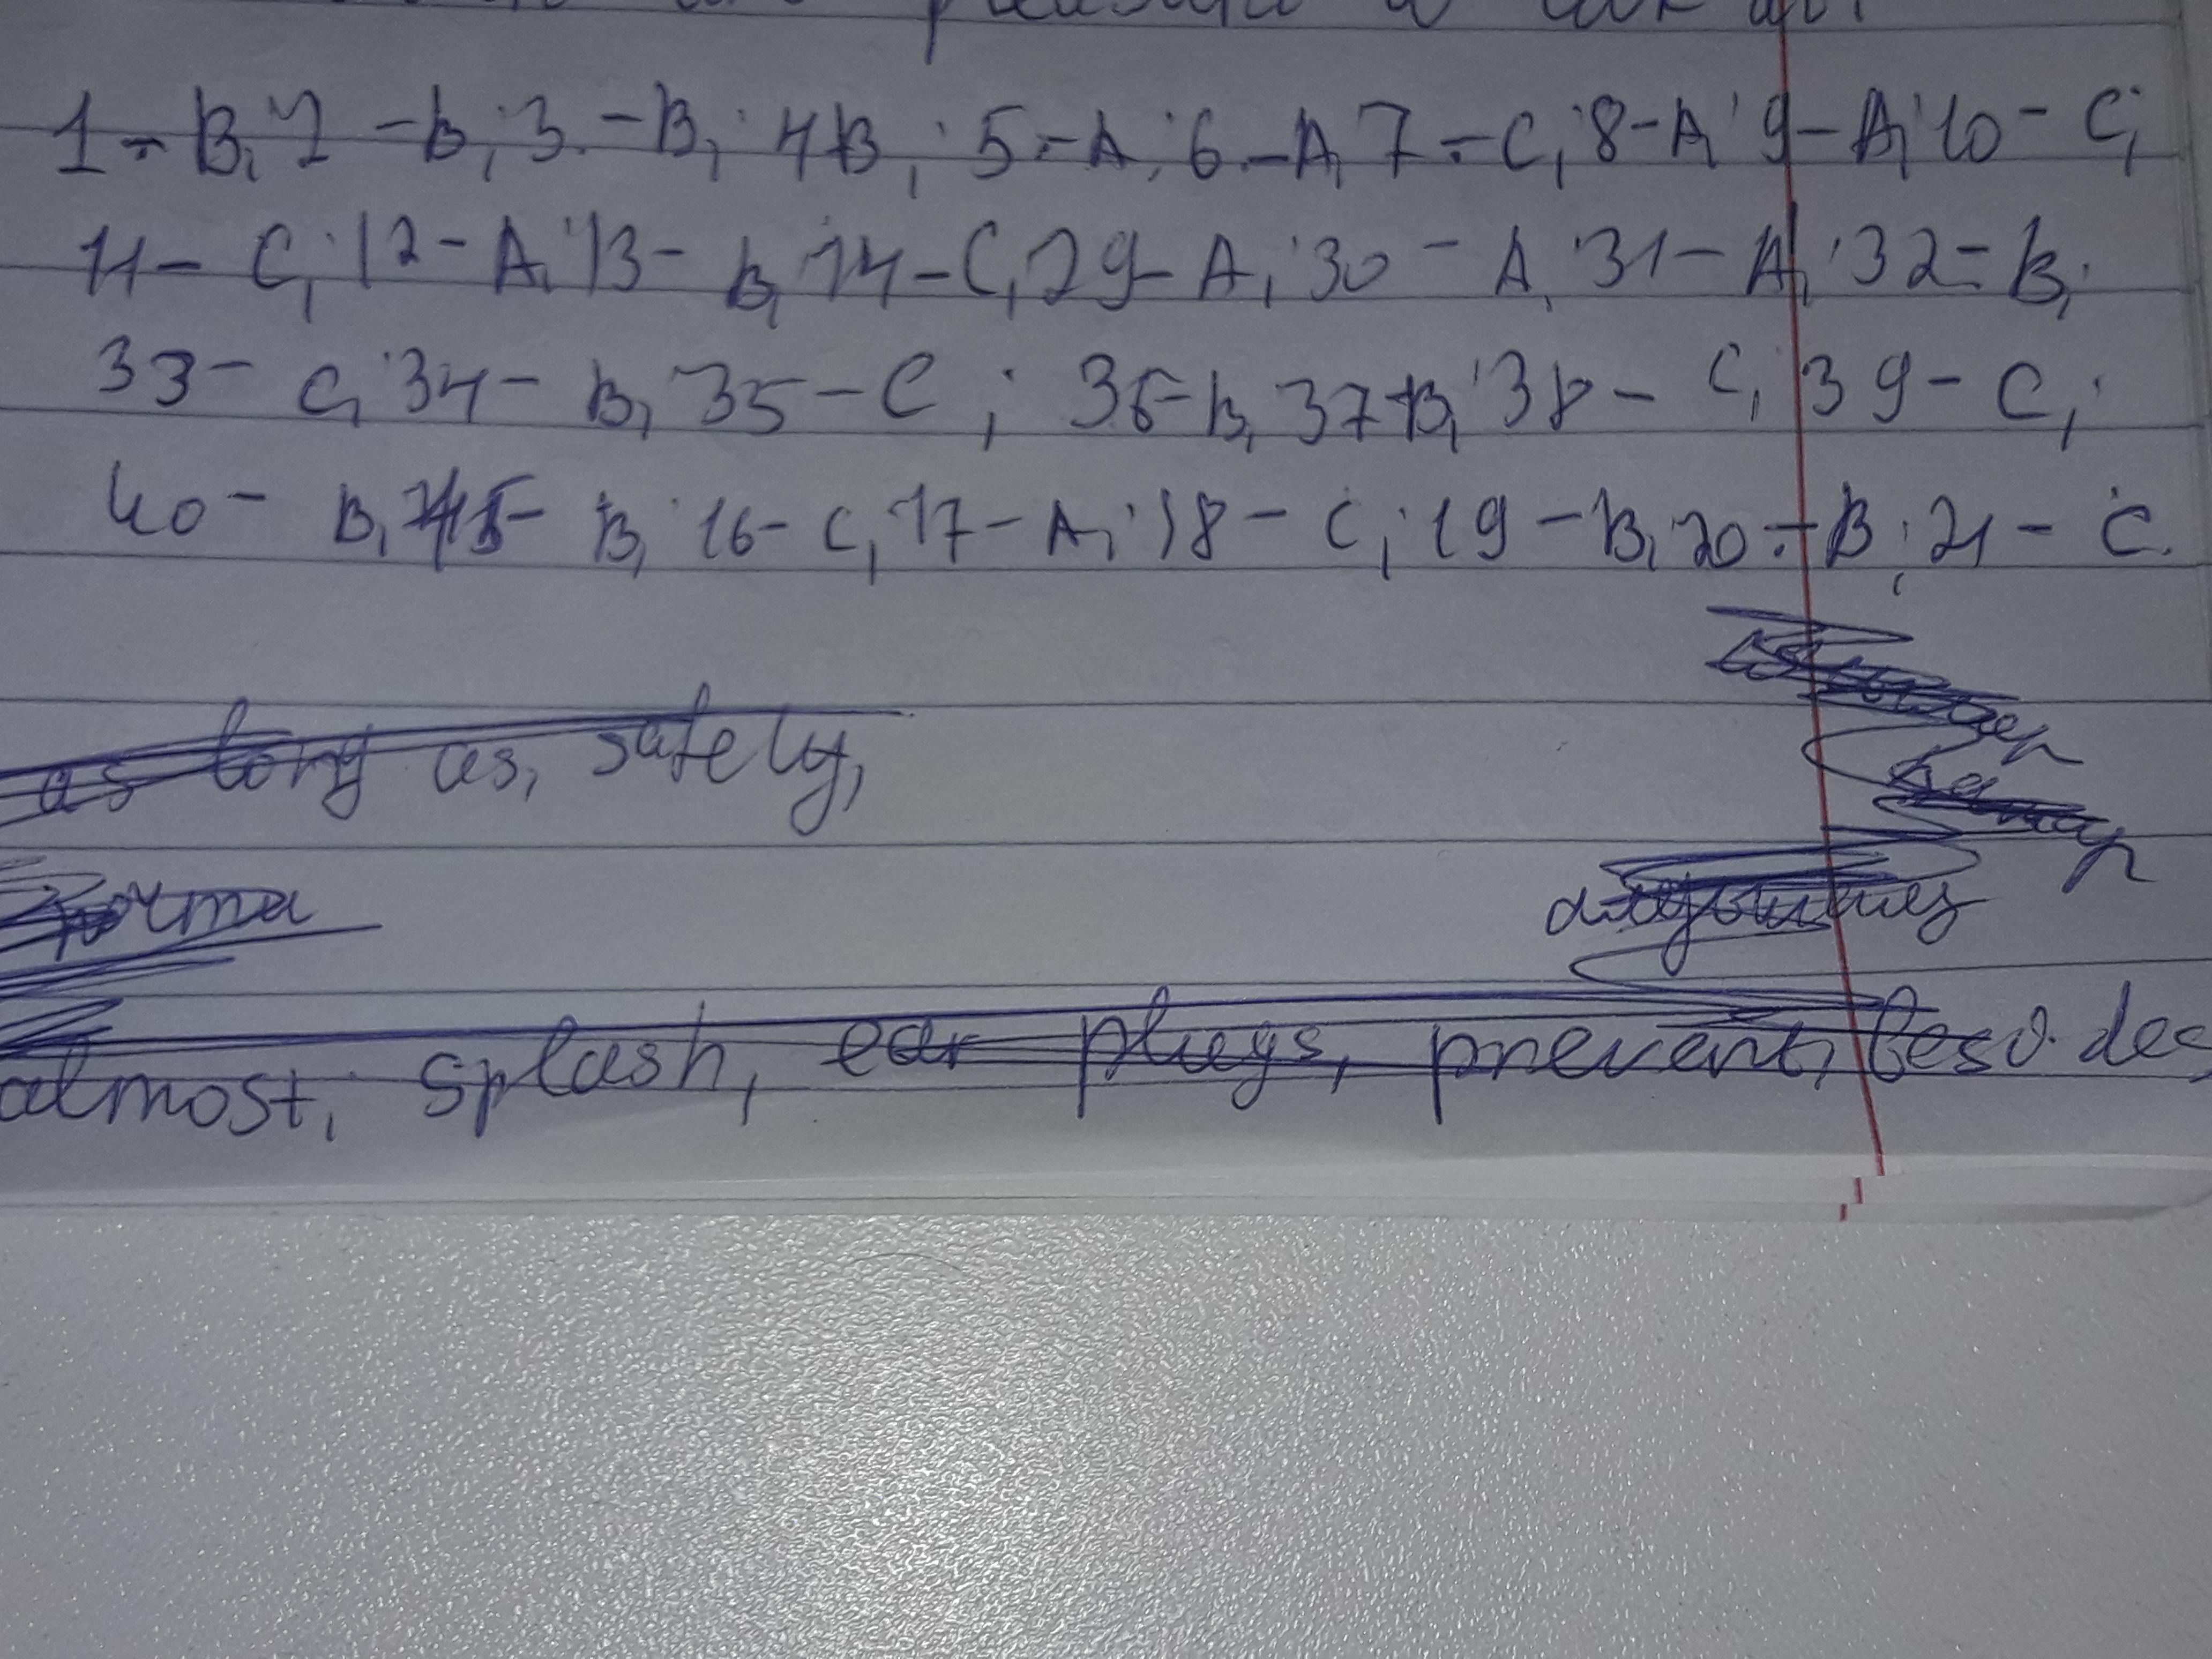 1 - B; 2 - B; 3 - B; 4 B; 5 - A; 6 - A; 7 - C; 8 - A; 9 - A; 10 - C;
11 - C; 12 - A; 13 - B; 14 - C; 29 - A; 30 - A; 31 - A; 32 - B;
33 - C; 34 - B; 35 - C; 36 - B; 37 - B; 38 - C; 39 - C;
40 - B; 15 - B; 16 - C; 17 - A; 18 - C; 19 - B; 20 - B; 21 - C.
as long as, safely,
almost, splash, ear plugs, prevent, besides,